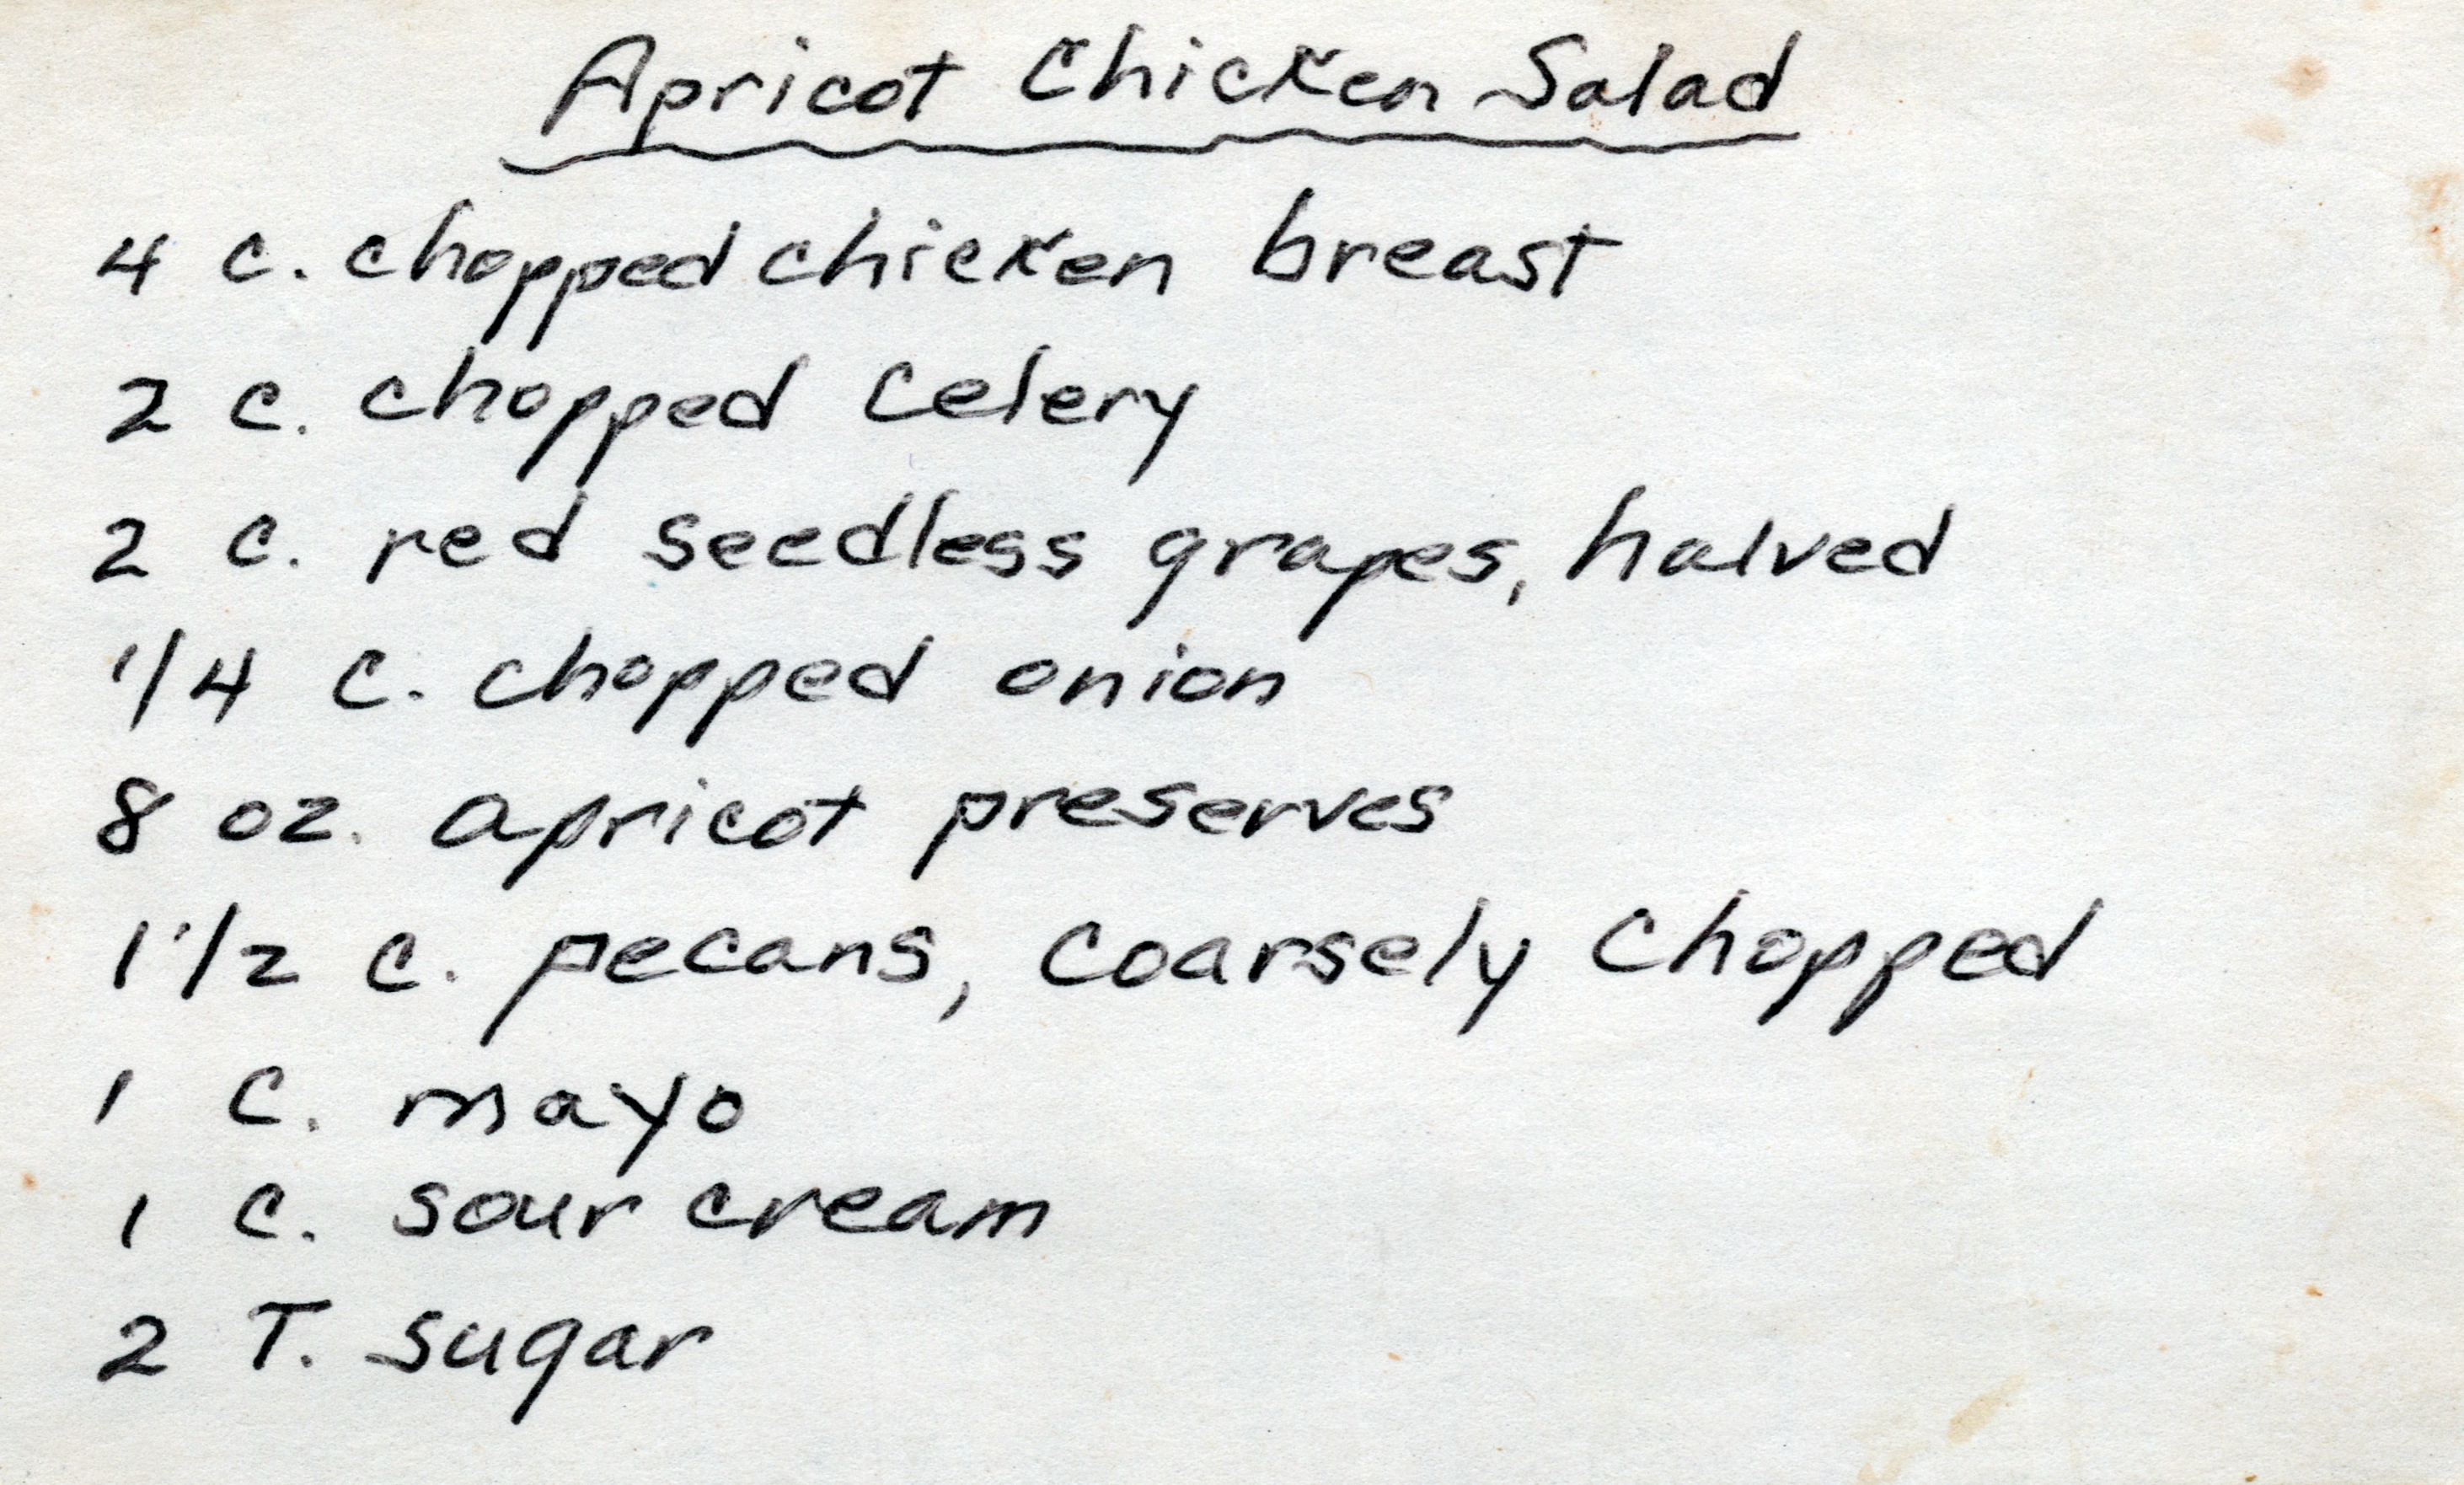 Apricot Chicken Salad
4 c. chopped chicken breast
2 c. chopped celery
2 c. red seedless grapes, halved
1/4 c. chopped onion
8 oz. apricot preserves
1 1/2 c. pecans, coarsely chopped
1 c. mayo
1 c. sour cream
2 T. sugar